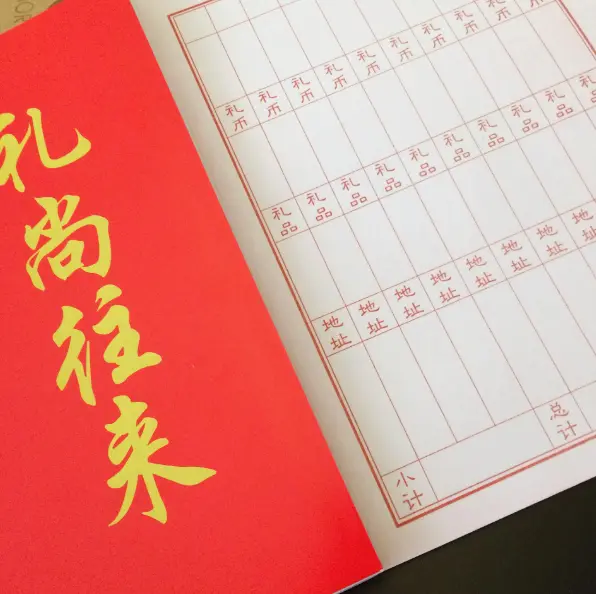 礼尚往来
礼币 礼币 礼币 礼币 礼币 礼币 礼币 礼币 币 币
礼品 礼品 礼品 礼品 礼品 礼品 礼品 礼品 礼品 礼品
地址 地址 地址 地址 地址 地址 地址 地址
小计
总计